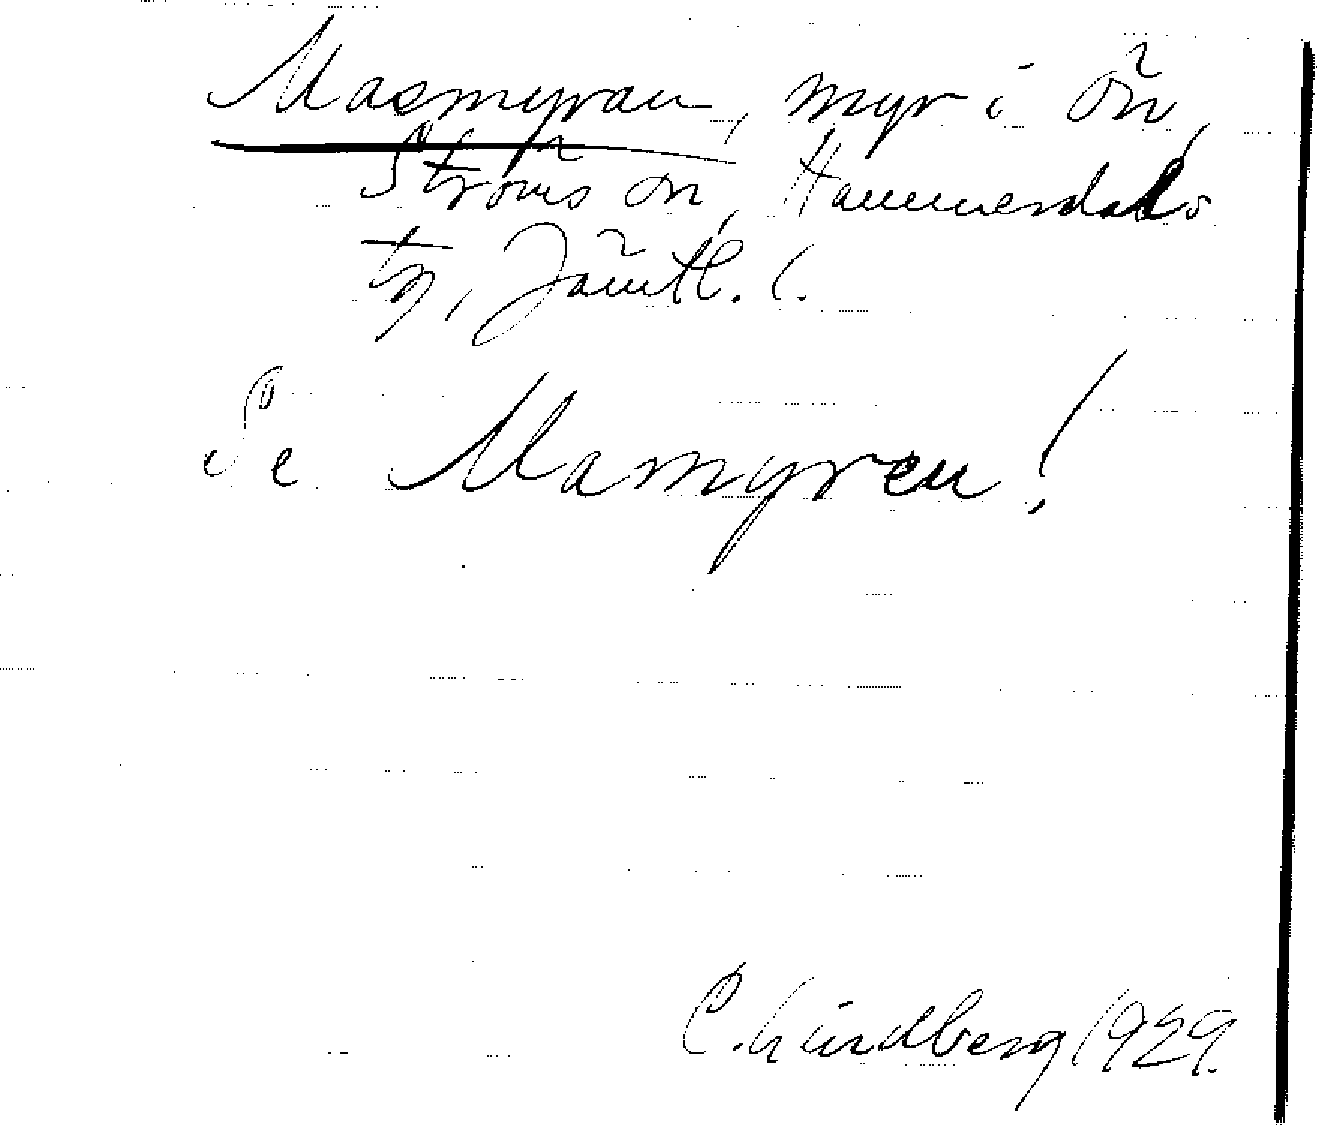 Masmyran, myr i Ön,
Ströms sn, Hammerdals
tg, Jämtl. l.
Se Mamyren!
C. Lindberg 1929.